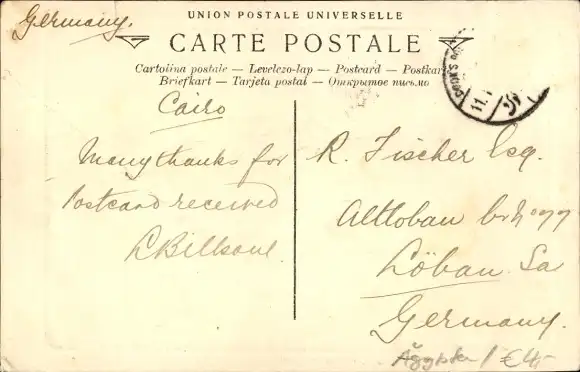 Germany.
UNION POSTALE UNIVERSELLE
CARTE POSTALE
Cartolina postale — Levelezo-lap — Postcard — Postkar
Briefkart — Tarjeta postal — Открытое письмо
Cairo
Many thanks for
Postcard received
R. Fischer Esq.
Altloban
Löban Sa
Germany.
Ägypten / € 4,-
11.